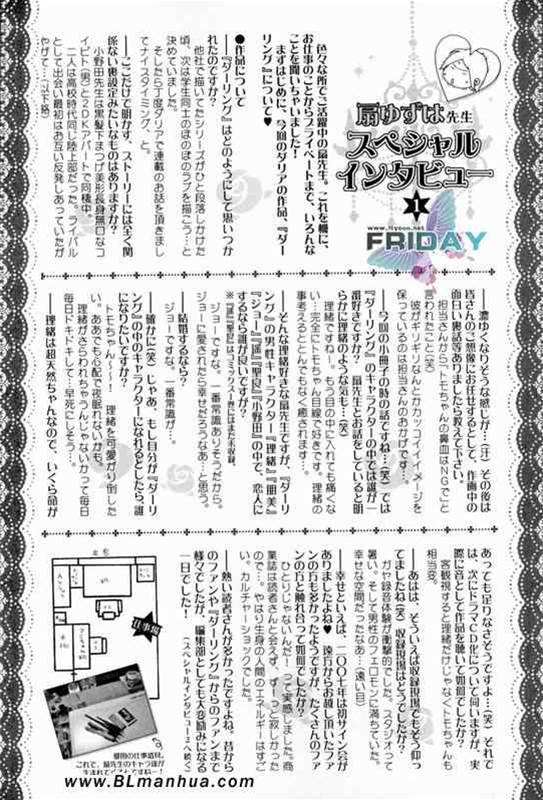 扇ゆずは先生
スペシャル
インタビュー
1
www.fryoyo.net
FRIDAY
色々な所でご活躍中の扇先生。これを機に、
お仕事のことからプライベートまで、いろんな
ことを聞いちゃいました!
まずはじめに、今回のダリアの作品、『ダー
リング』について♥
●作品について
──『ダーリング』はどのようにして思いつか
れたのですか?
他社で描いてたシリーズがひと段落しかけた
頃、次は学生同士のほのぼのラブを描こう…と
決めていました。
そしたら丁度ダリアで連載のお話を頂きまし
てナイスタイミング、と。
──ここだけで明かす、ストーリーには全く関
係ない裏設定みたいなものはありますか?
小野田先生は黒髪下まつげ美形長身無口なコ
イビト(男)と2DKアパートで同棲中。
二人は高校時代同じ陸上部だった。ライバル
として出会い最初はお互い反発しあっていたが
やがて…(以下略)
──濃ゆくなりそうな感じが…(汗)その後は
皆さんのご想像にお任せするとして、作画中の
面白い裏話等ありましたら教えて下さい。
担当さんから「トモちゃんの鼻血はNGで」と
言われたこと(笑)
彼がギリギリなんとかカッコイイイメージを
保っているのは担当さんのおかげです…
──今回の小冊子の時の話ですね…(笑)では
『ダーリング』のキャラクターの中では誰が一
番好きですか?扇先生とお話をしていると明
らかに理緒のような気も…(笑)
理緒ですね…。もう目の中に入れても痛くな
い…完全にトモちゃん目線で好きです。理緒の
事考えるととんでもなく癒されます…
──そんな理緒好きな扇先生ですが、『ダーリ
ング』の男性キャラクター『理緒』『朋美』
『ジョー』『遥』『聖良』『小野田』の中で、恋人に
するなら誰が良いですか?
ジョーですな。一番常識ありそうだから。
ジョーに愛されたら幸せだろうなあ…と思う。
──結婚するなら?
ジョーですな。一番常識が…。
──確かに(笑)じゃあ、もし自分が『ダーリ
ング』の中のキャラクターになれるとしたら、誰
になりたいですか?
トモちゃん~~~!理緒を可愛がり倒した
い。ああでも心配で夜眠れないかも。
理緒がさらわれちゃうんじゃないかって毎日
毎日ドキドキして…早死にしそう…。
──理緒は超天然ちゃんなので、いくら命が
あっても足りなさそうですよ…(笑)それで
は、次にドラマCD化について伺いますが、実
際に音として作品を聴いて如何でしたか?
客観視すると理緒だけじゃなくトモちゃんも
相当変。
──あはは、そういえば収録現場でもそう仰っ
てましたね(笑)収録現場はどうでしたか?
ガヤ録音体験が衝撃的でした。スタジオって
暑い。そして男性のフェロモンに満ちていた。
幸せな空間だったなあ…(遠い目)
──幸せといえば、二〇〇七年は初サイン会が
ありましたよね♥遠方からお越し頂いたファ
ンの方も多かったようですが、たくさんのファ
ンの方と触れ合って如何でしたか?
ひとりじゃないんだ!って実感しました。商
業誌は読者さんと会えず、ずーっと寂しかった
ので…。やはり生身の人間のエネルギーはすご
い。カルチャーショックでした。
──熱い読者さんが多かったですよね。昔から
のファンや『ダーリング』からのファンまで
様々でしたが、編集部としても大変励みになる
一日でした!
(スペシャルインタビュー2へ続く)
仕事場
これで、扇先生のキャラ達が
www.BLmanhua.com